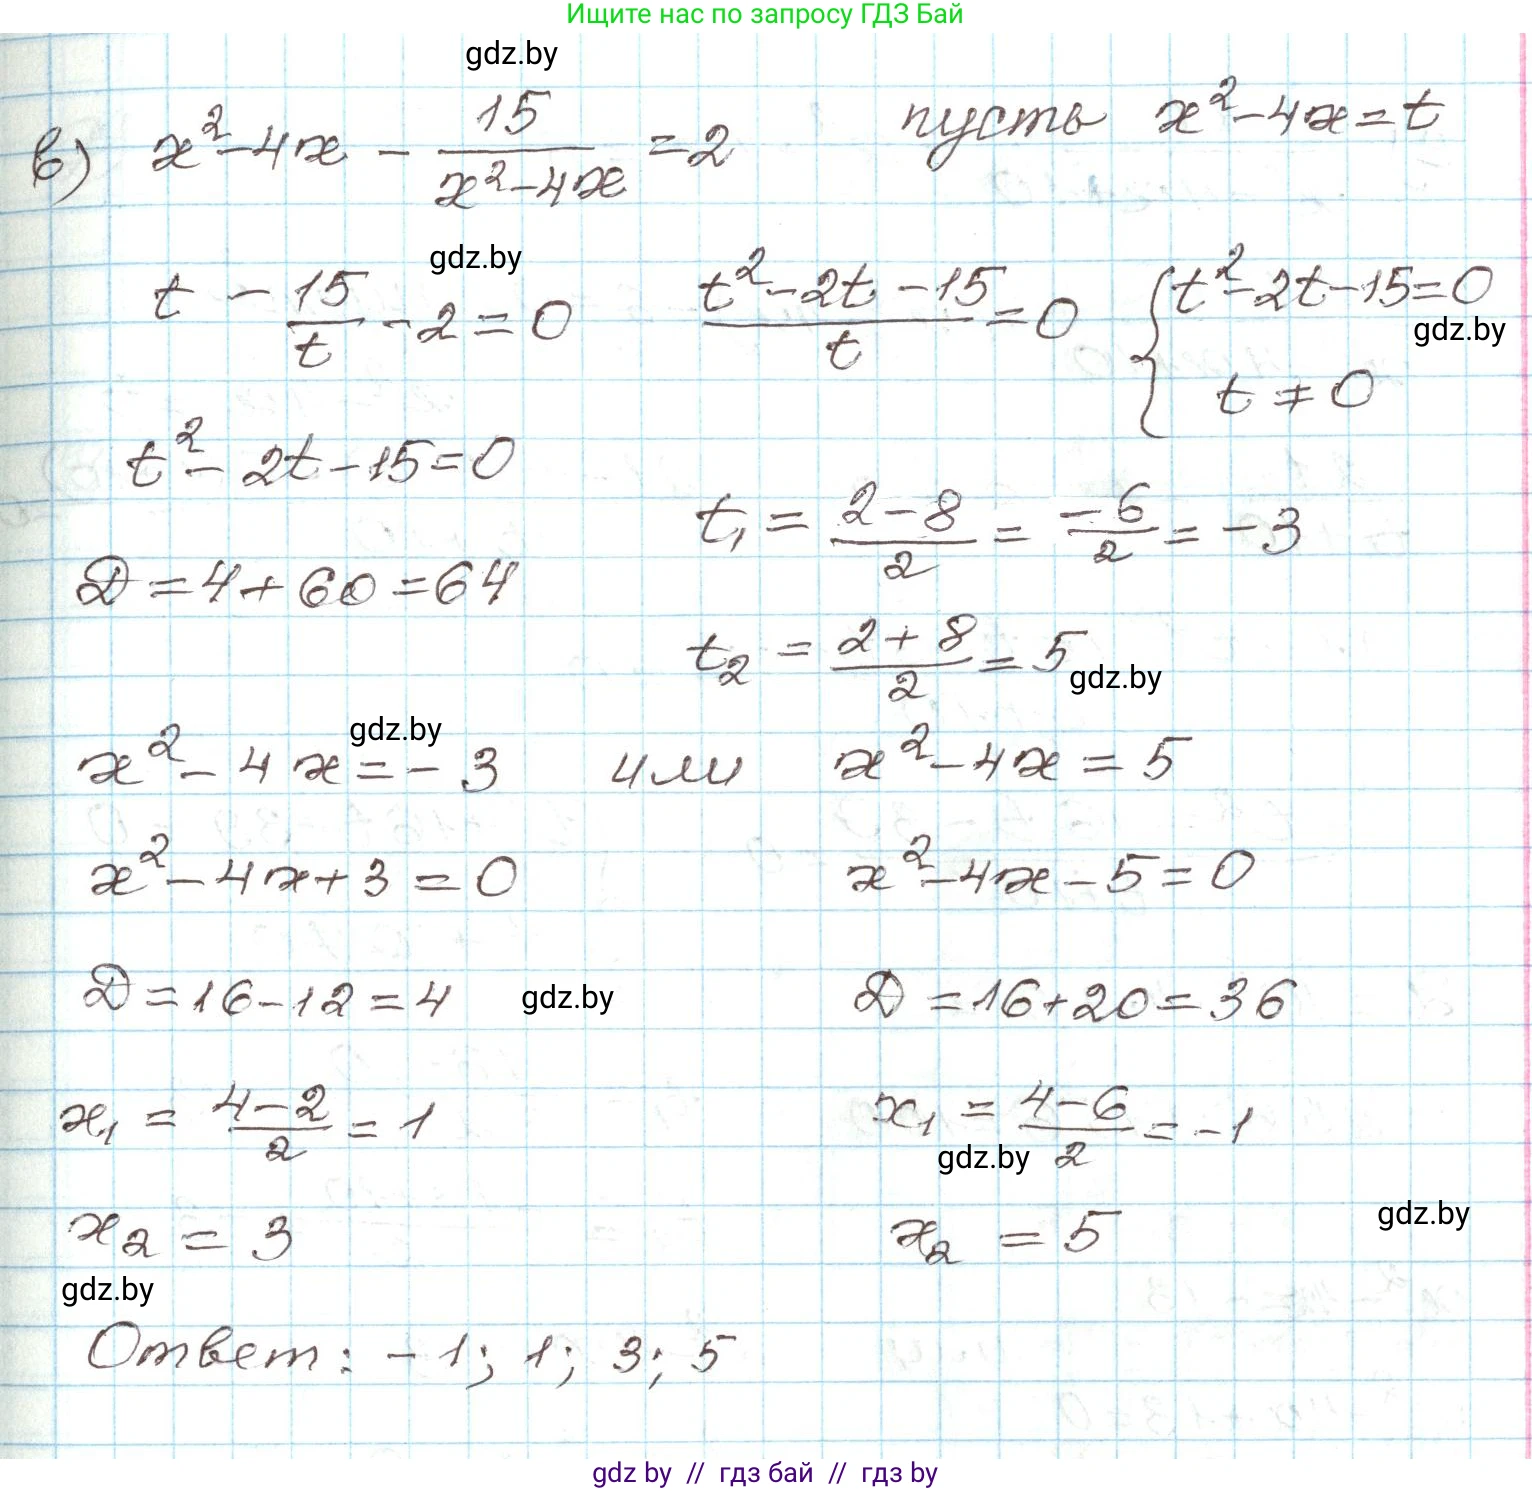 Ищите нас по запросу ГДЗ Бай
gdz.by
в) x² - 4x - 15/(x² - 4x) = 2 пусть x² - 4x = t
gdz.by
t - 15/t - 2 = 0 (t² - 2t - 15)/t = 0 { t² - 2t - 15 = 0
gdz.by
t ≠ 0
t² - 2t - 15 = 0
t₁ = (2 - 8)/2 = -6/2 = -3
D = 4 + 60 = 64
t₂ = (2 + 8)/2 = 5
gdz.by
gdz.by
x² - 4x = -3 или x² - 4x = 5
x² - 4x + 3 = 0 x² - 4x - 5 = 0
D = 16 - 12 = 4 gdz.by D = 16 + 20 = 36
x₁ = (4 - 2)/2 = 1 x₁ = (4 - 6)/2 = -1
gdz.by
x₂ = 3 x₂ = 5 gdz.by
gdz.by
Ответ: -1; 1; 3; 5
gdz by // гдз бай // гдз by